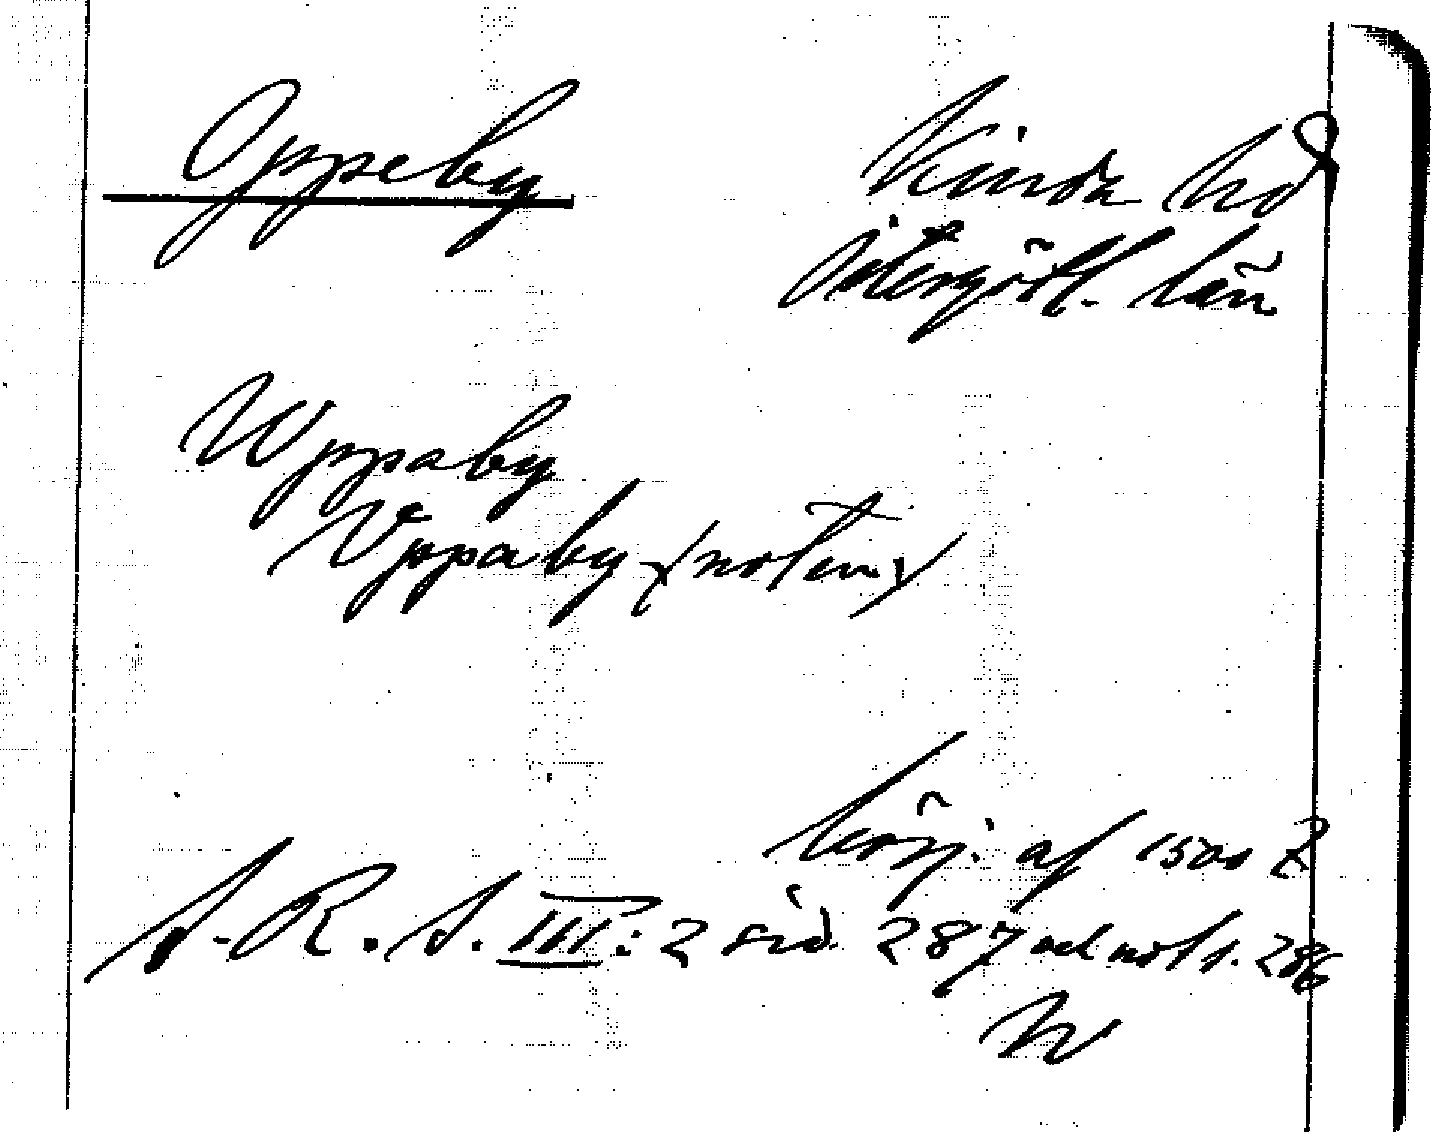 Oppeby Kinda hd
Östergötl. län
Wppaby
Vppaby (noten)
börj. af 1500 t
S. R. S. III: 2 sid. 287 och not s. 286